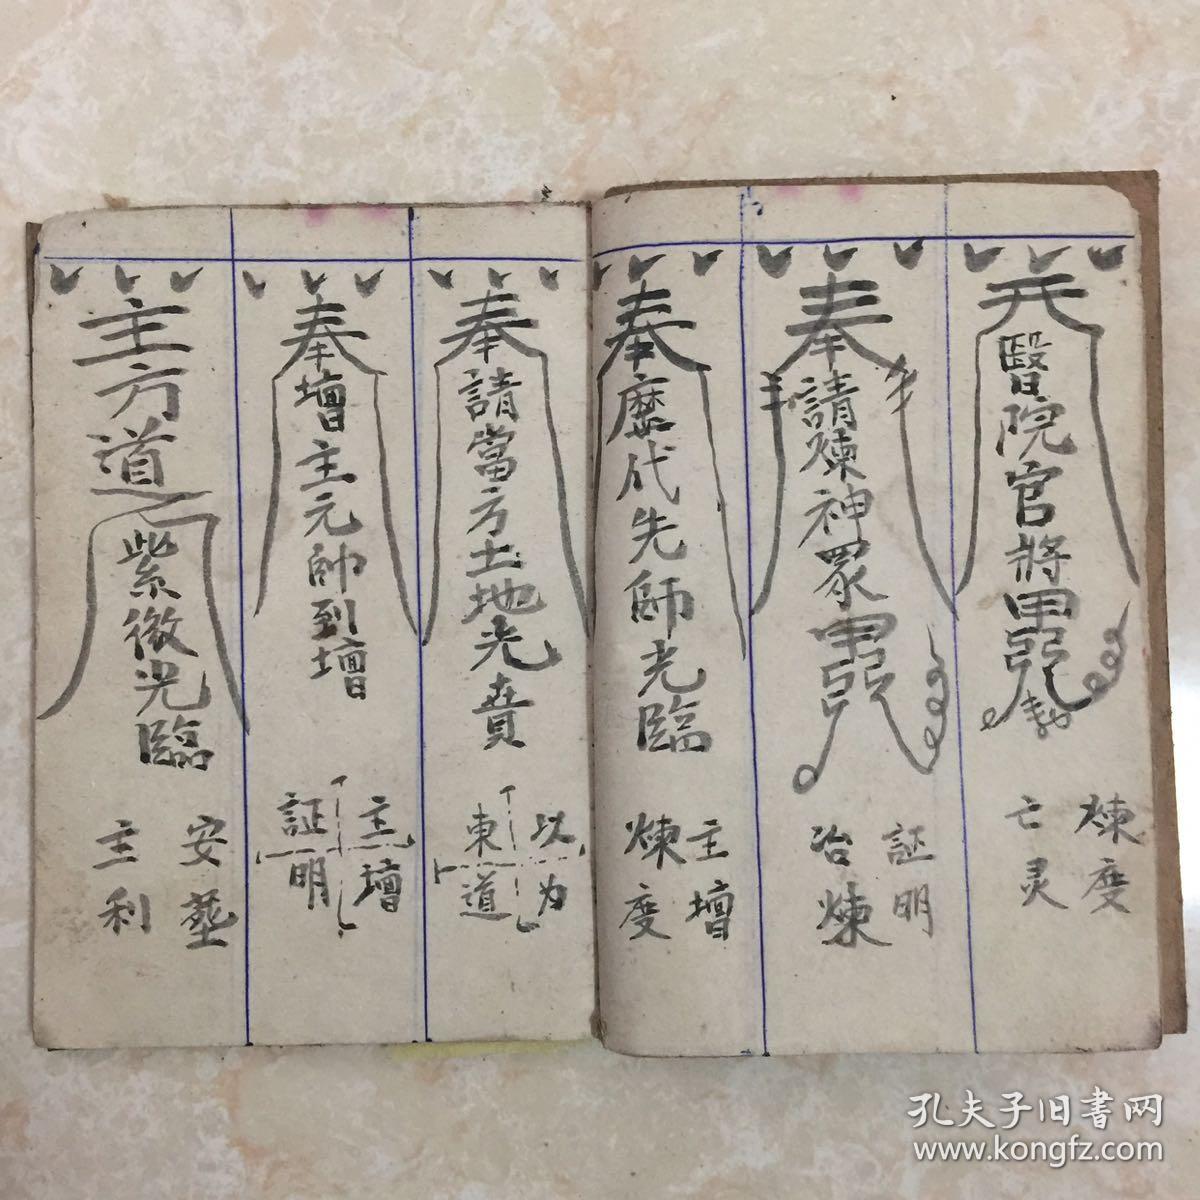 天醫院官將罡
煉度
亡灵
奉請煉神眾罡
証明
治煉
奉歷代先師光臨
主壇
煉度
奉請當方土地光賁
以为
東道
奉壇主元帥到壇
主壇
証明
主方道紫微光臨
安葬
主利
孔夫子旧書网
www.kongfz.com